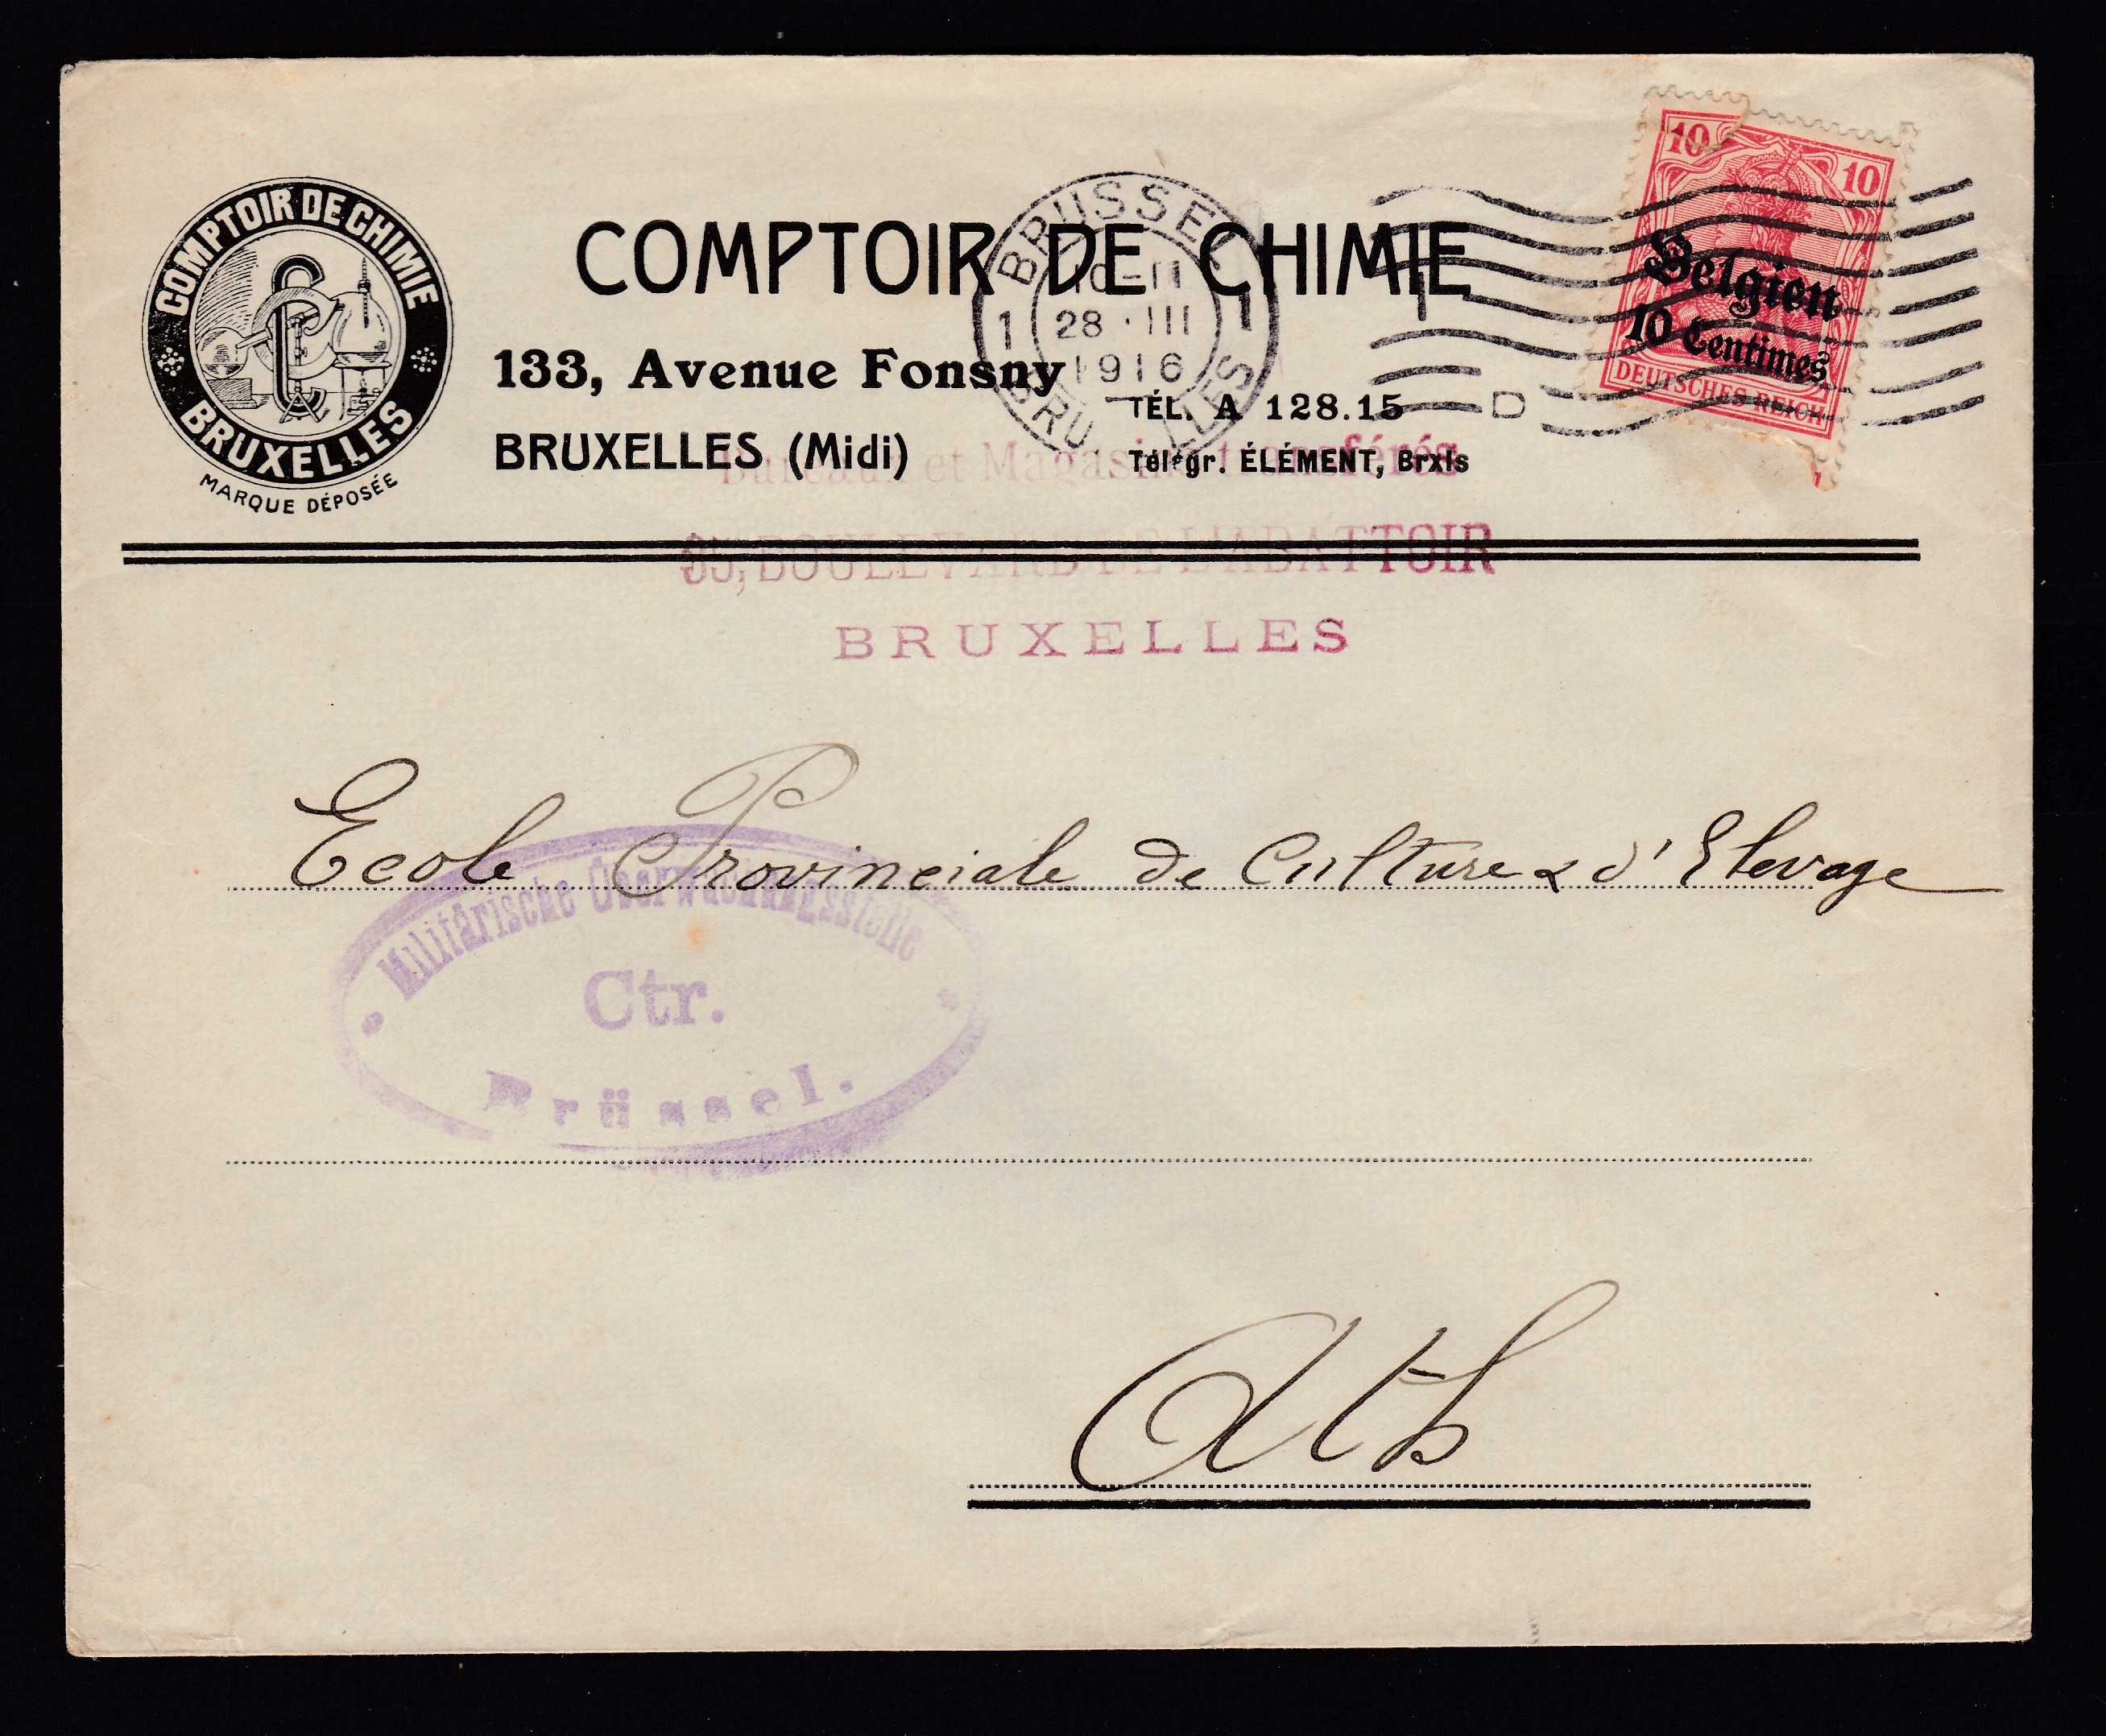 COMPTOIR DE CHIMIE
BRUXELLES
MARQUE DÉPOSÉE
COMPTOIR DE CHIMIE
133, Avenue Fonsny
BRUXELLES (Midi)
TÉL. A 128.15
Télégr. ÉLÉMENT, Brxls
BRUSSEL
1 28 · III 1
1916
10 10
Belgien
10 Centimes
DEUTSCHES REICH
Bureaux et Magasins transférés
BOULEVARD DE L'ABATTOIR
BRUXELLES
Ecole Provinciale de Culture & d'Elevage
Militärische Überwachungsstelle
Ctr.
Brüssel.
Ath